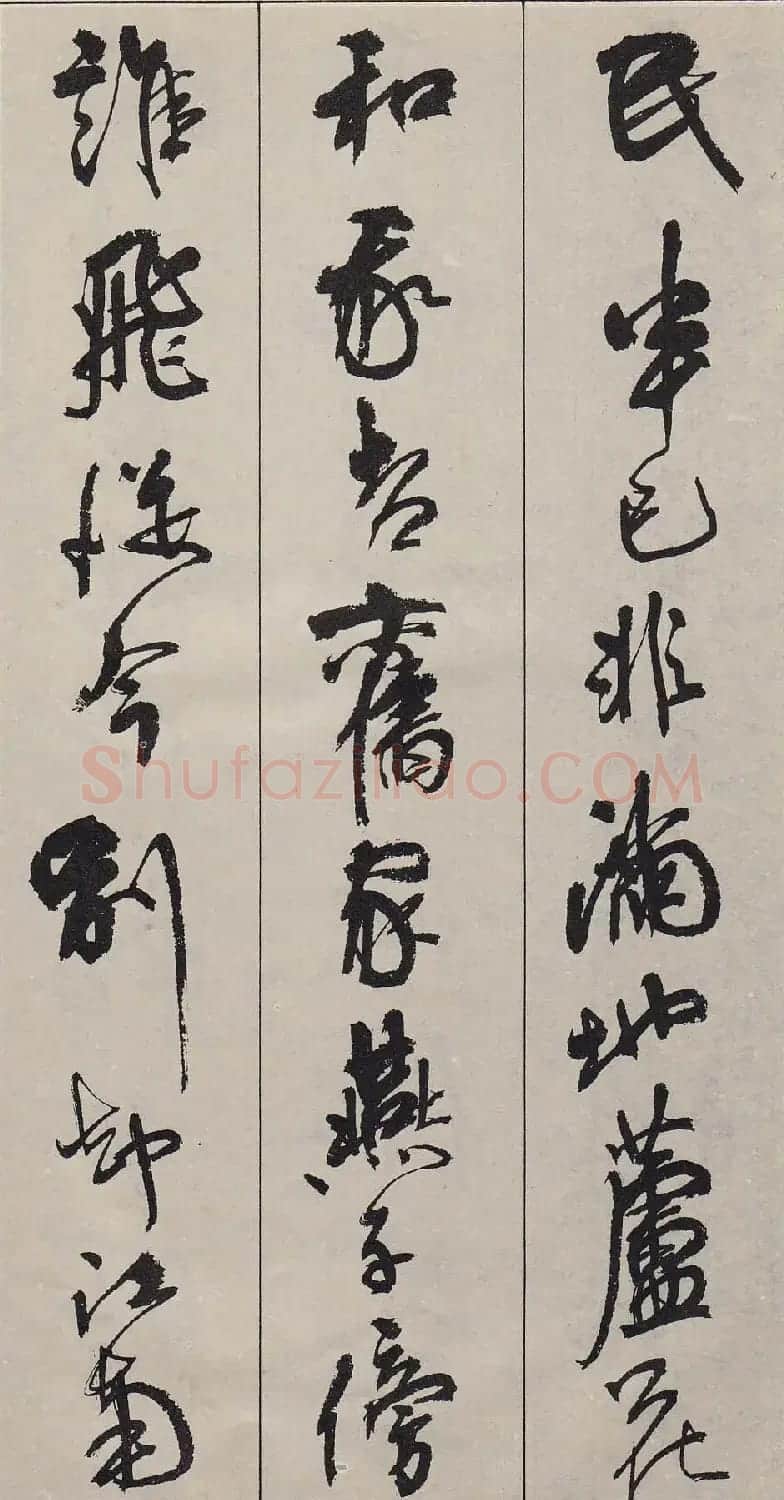 民半已非滿地蘆花
和我老舊家燕子傍
誰飛從今別却江南
Shufaziliao.COM